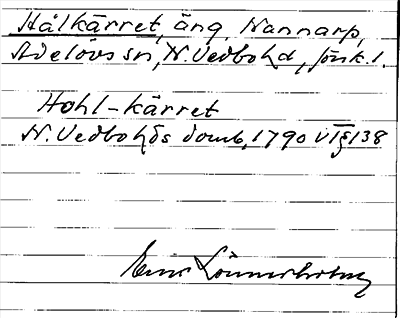 Hålkärret, äng, Nannarp,
Adelövs sn, N. Vedbo hd, Jönk. l.
Hohl-kärret
N. Vedbo hds domb, 1790 VI § 138
Eric